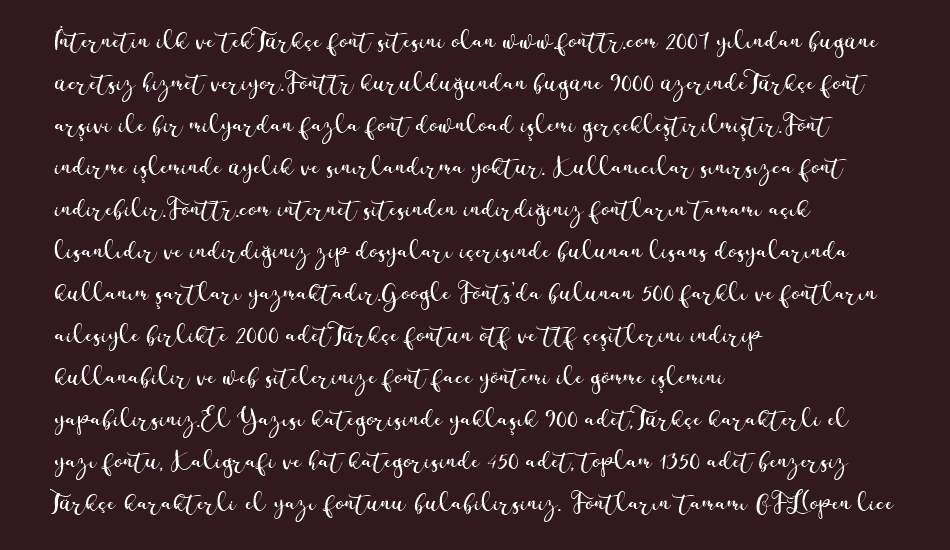 İnternetin ilk ve tek Türkçe font sitesini olan www.fonttr.com 2007 yılından bugüne
ücretsiz hizmet veriyor.Fonttr kurulduğundan bugüne 9000 üzerinde Türkçe font
arşivi ile bir milyardan fazla font download işlemi gerçekleştirilmiştir.Font
indirme işleminde üyelik ve sınırlandırma yoktur. Kullanıcılar sınırsızca font
indirebilir.Fonttr.com internet sitesinden indirdiğiniz fontların tamamı açık
lisanlıdır ve indirdiğiniz zip dosyaları içerisinde bulunan lisans dosyalarında
kullanım şartları yazmaktadır.Google Fonts'da bulunan 500 farklı ve fontların
ailesiyle birlikte 2000 adet Türkçe fontun otf ve ttf çeşitlerini indirip
kullanabilir ve web sitelerinize font face yöntemi ile gömme işlemini
yapabilirsiniz.El Yazısı kategorisinde yaklaşık 900 adet, Türkçe karakterli el
yazı fontu, Kaligrafi ve hat kategorisinde 450 adet, toplam 1350 adet benzersiz
Türkçe karakterli el yazı fontunu bulabilirsiniz. Fontların tamamı OFL(open lice